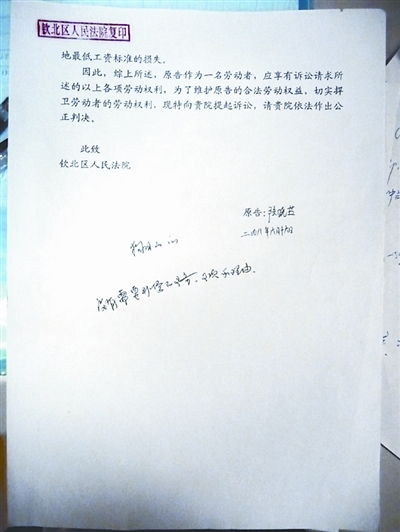 钦北区人民法院复印
地最低工资标准的损失。
因此，综上所述，原告作为一名劳动者，应享有诉讼请求所
述的以上各项劳动权利，为了维护原告的合法劳动权益，切实捍
卫劳动者的劳动权利，现特向贵院提起诉讼，请贵院依法作出公
正判决。
此致
钦北区人民法院
原告：
没有需要补偿